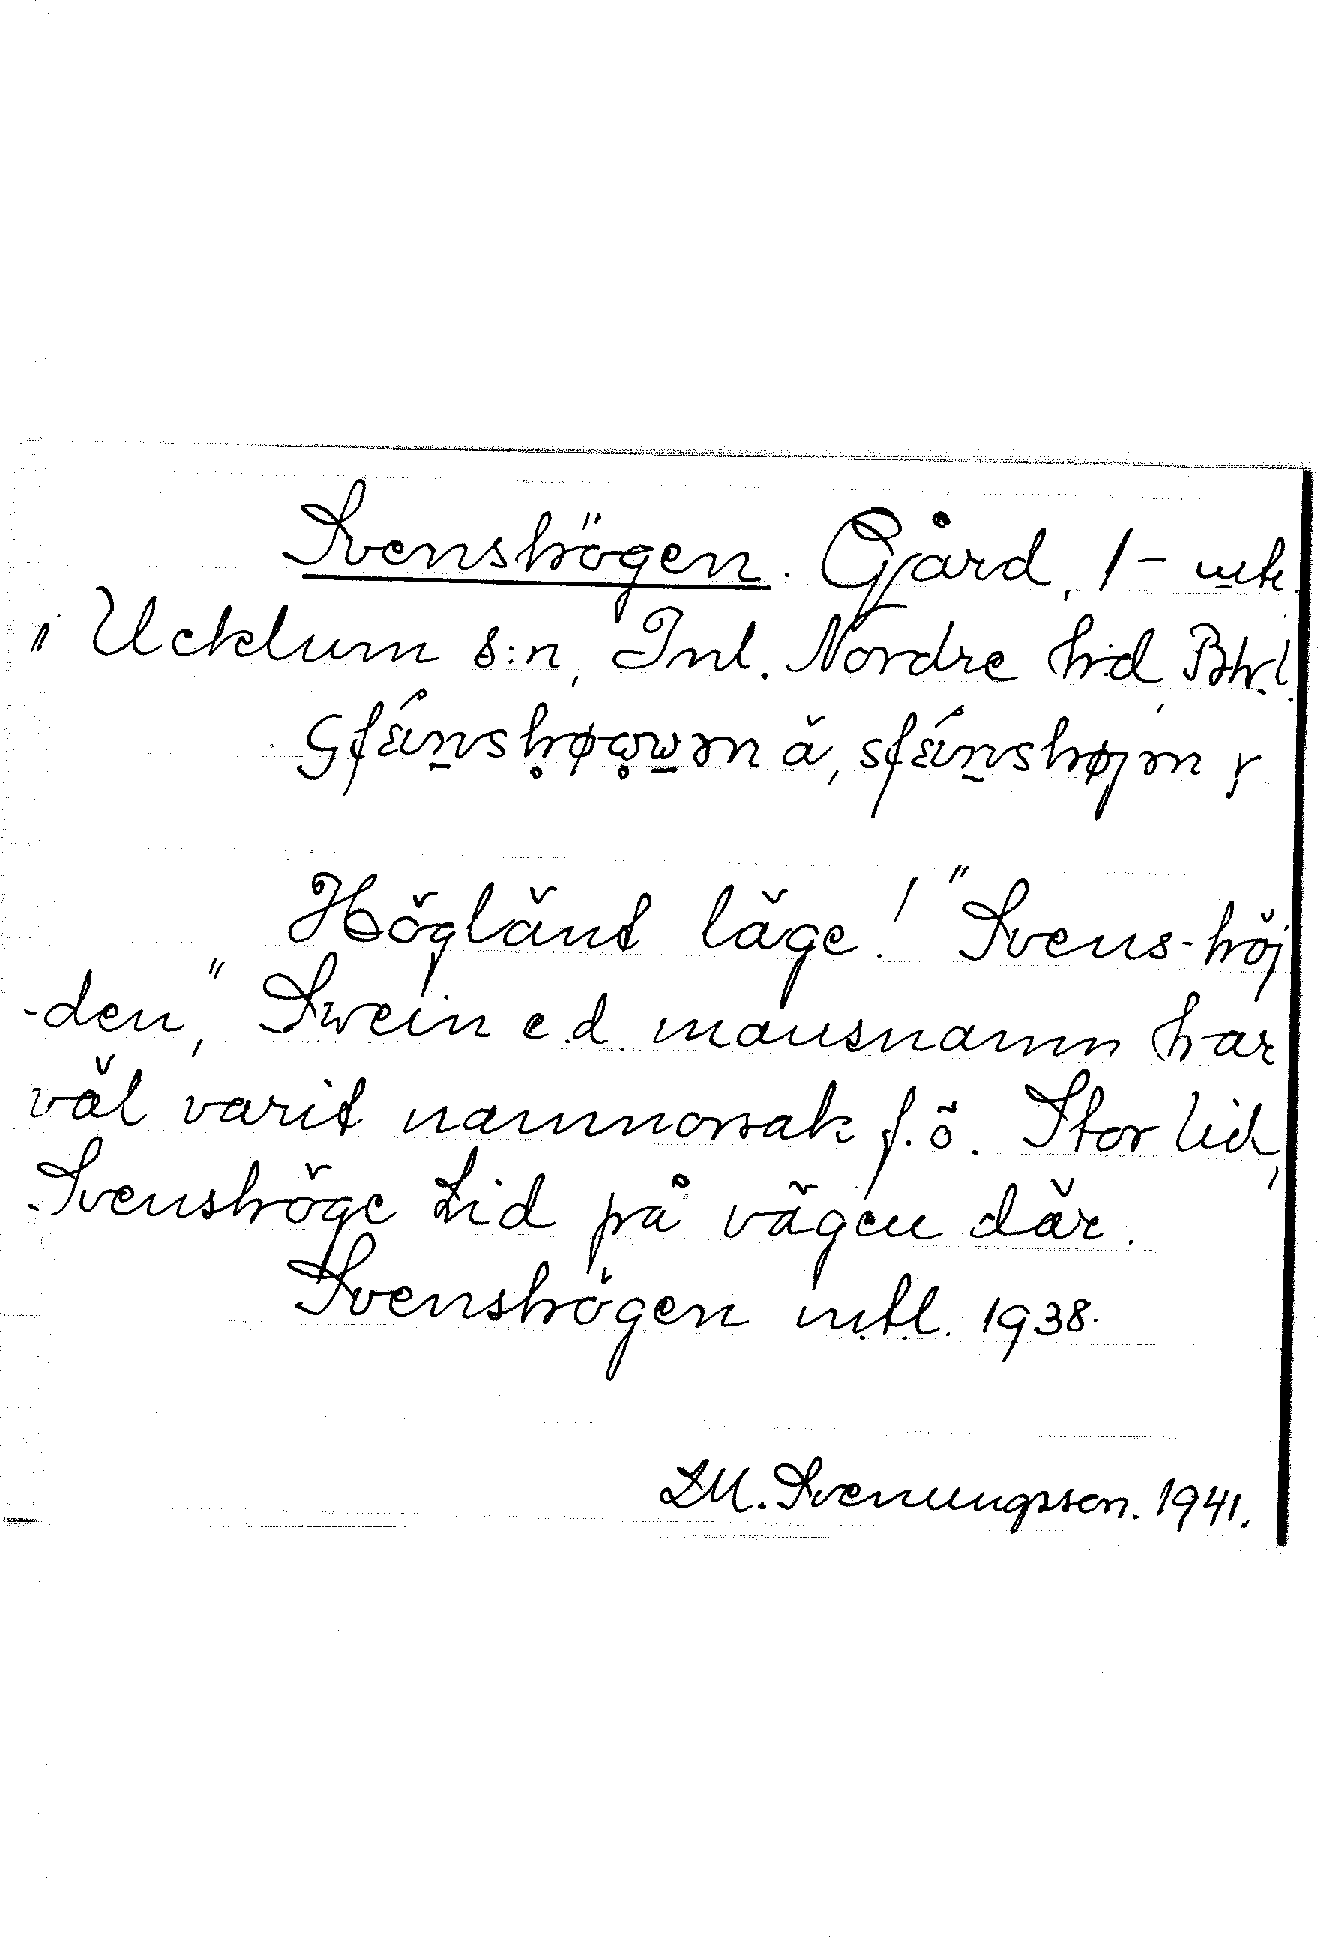 Svenshögen. Gård, 1 – mtl
i Ucklum s:n, Inl. Nordre hd, Bhl.
ä, y
Höglänt läge! "Svens-höj
-den", Swein e.d. mansnamn har
väl varit namnorsak f.ö. Stor lid,
Svenshöge Lid på vägen där.
Svenshögen mtl. 1938.
LM. Svenungsson. 1941.